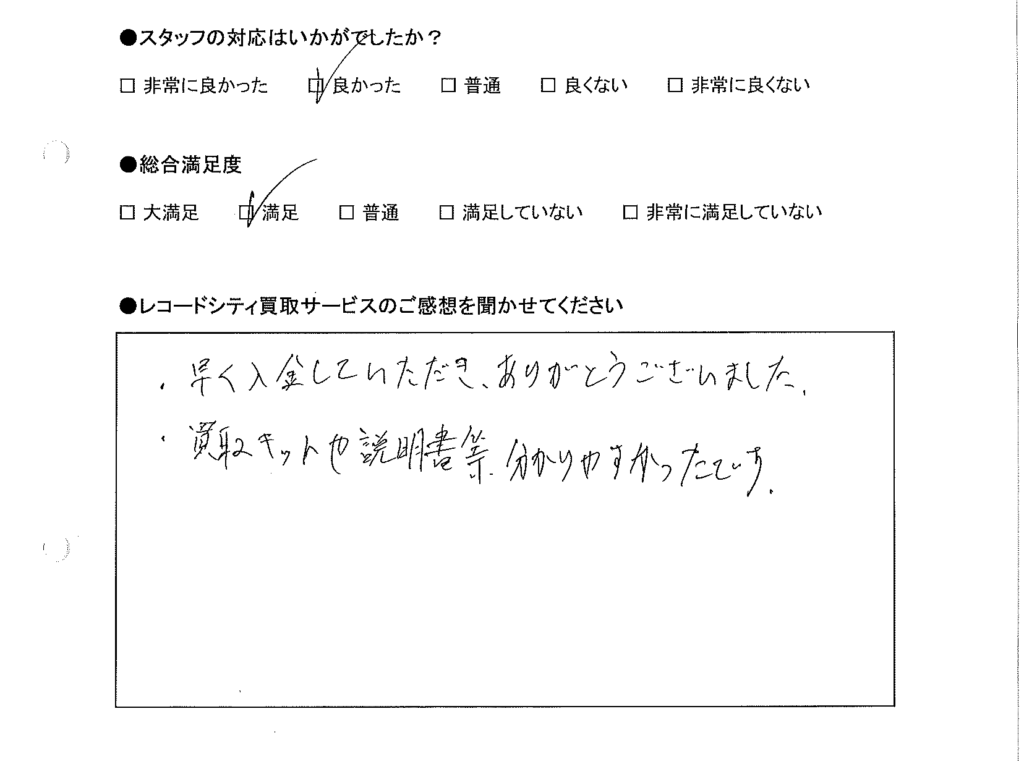 ●スタッフの対応はいかがでしたか？
□ 非常に良かった ☑ 良かった □ 普通 □ 良くない □ 非常に良くない
●総合満足度
□ 大満足 ☑ 満足 □ 普通 □ 満足していない □ 非常に満足していない
●レコードシティ買取サービスのご感想を聞かせてください
・早く入金していただき、ありがとうございました。
・買取キットや説明書等、分かりやすかったです。